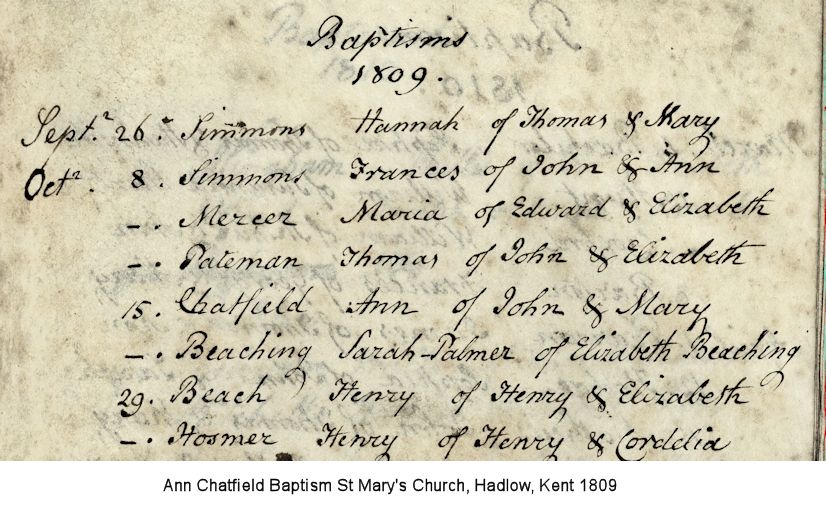 Baptisms
1809.
Sept.r 26. Simmons Hannah of Thomas & Mary
Octr. 8. Simmons Frances of John & Ann
-. Mercer Maria of Edward & Elizabeth
-. Pateman Thomas of John & Elizabeth
15. Chatfield Ann of John & Mary
-. Beaching Sarah-Palmer of Elizabeth Beaching
29. Beach Henry of Henry & Elizabeth
-. Hosmer Henry of Henry & Cordelia
Ann Chatfield Baptism St Mary's Church, Hadlow, Kent 1809